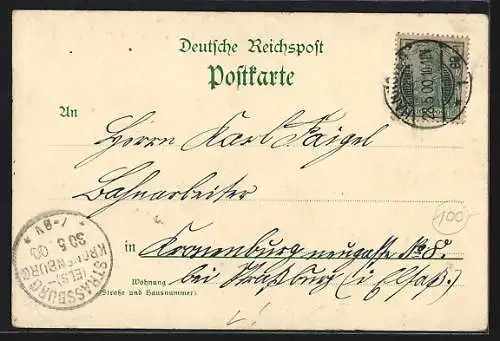 Deutsche Reichspost
Postkarte
28.5.00.10-11V.
An
Herrn Karl Faigel
Bahnarbeiter
100
in Kronenburg neugasse No 8.
bei Straßburg (i/Elsaß.)
Wohnung
(Straße und Hausnummer)
STRASSBURG
KRONENBURG
(ELS)
30.5.00
7-8V